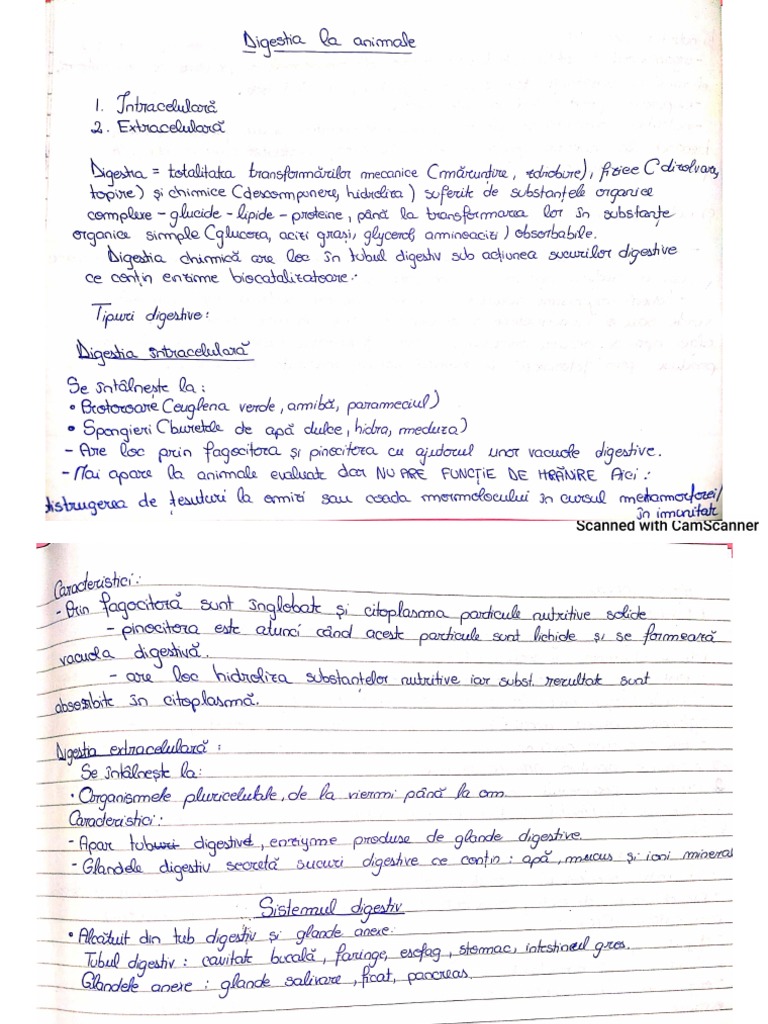 Digestia la animale
1. Intracelulară
2. Extracelulară
Digestia = totalitatea transformărilor mecanice (mărunțire, zdrobire), fizice (dizolvare,
topire) și chimice (descompunere, hidroliza) suferite de substanțele organice
complexe - glucide - lipide - proteine, până la transformarea lor în substanțe
organice simple (glucoza, acizi grași, glycerol, aminoacizi) absorbabile.
Digestia chimică are loc în tubul digestiv sub acțiunea sucurilor digestive
ce conțin enzime biocatalizatoare.
Tipuri digestive:
Digestia intracelulară
Se întâlnește la:
• Protozoare (euglena verde, amibă, parameciul)
• Spongieri (buretele de apă dulce, hidra, meduza)
- Are loc prin fagocitoza și pinocitoza cu ajutorul unor vacuole digestive.
- Mai apare la animale evoluate dar NU ARE FUNCȚIE DE HRĂNIRE Aici:
distrugerea de țesuturi la omizi sau coada mormolocului în cursul metamorfozei/
în imunitate
Scanned with CamScanner
Caracteristici:
- Prin fagocitoză sunt înglobate și citoplasma particule nutritive solide
- pinocitoza este atunci când aceste particule sunt lichide și se formează
vacuola digestivă.
- are loc hidroliza substanțelor nutritive iar subst. rezultate sunt
absorbite în citoplasmă.
Digestia extracelulară:
Se întâlnește la:
• Organismele pluricelulare, de la viermi până la om.
Caracteristici:
- Apar tuburi digestive, enzyme produse de glande digestive.
- Glandele digestiv secretă sucuri digestive ce conțin: apă, mucus și ioni minerali
Sistemul digestiv
• Alcătuit din tub digestiv și glande anexe.
Tubul digestiv: cavitate bucală, faringe, esofag, stomac, intestinul gros.
Glandele anexe: glande salivare, ficat, pancreas.